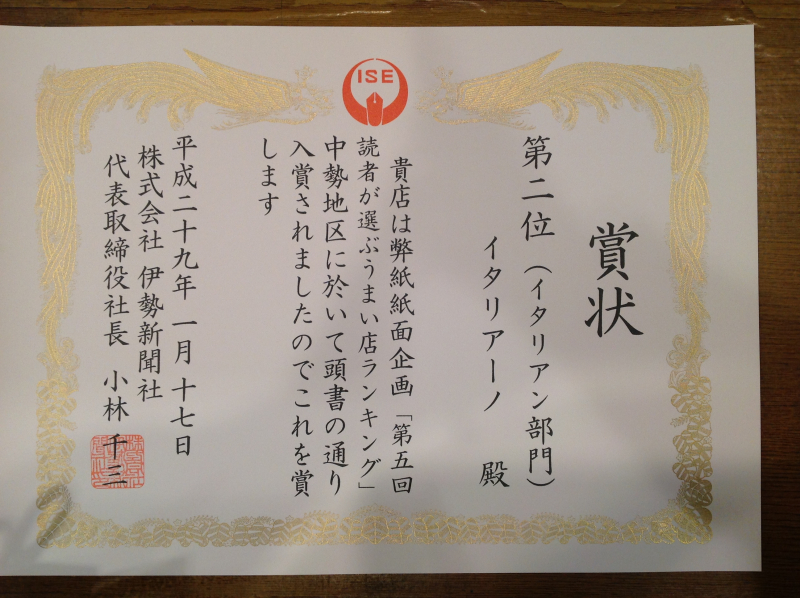 ISE
賞状
第二位（イタリアン部門）
イタリアーノ 殿
貴店は弊紙紙面企画「第五回
読者が選ぶうまい店ランキング」
中勢地区に於いて頭書の通り
入賞されましたのでこれを賞
します
平成二十九年一月十七日
株式会社 伊勢新聞社
代表取締役社長 小林 千三